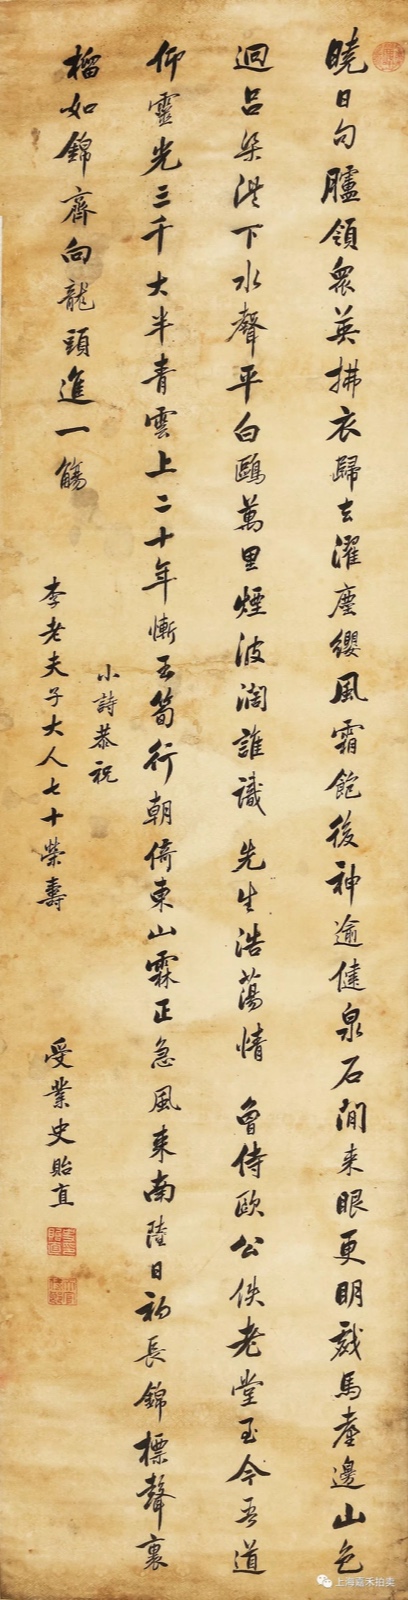 曉日句臚領衆英拂衣歸去濯塵纓風霜飽後神逾健泉石間来眼更明戲馬臺邊山色
迴呂梁洪下水聲平白鷗萬里煙波濶誰識先生浩蕩情曾侍歐公佚老堂至今吾道
仰靈光三千大半青雲上二十年慚玉筍行朝倚東山霖正急風来南陸日初長錦標聲裏
榴如錦齊向龍頭進一觴
小詩恭祝
李老夫子大人七十榮壽
受業史貽直
上海嘉禾拍卖